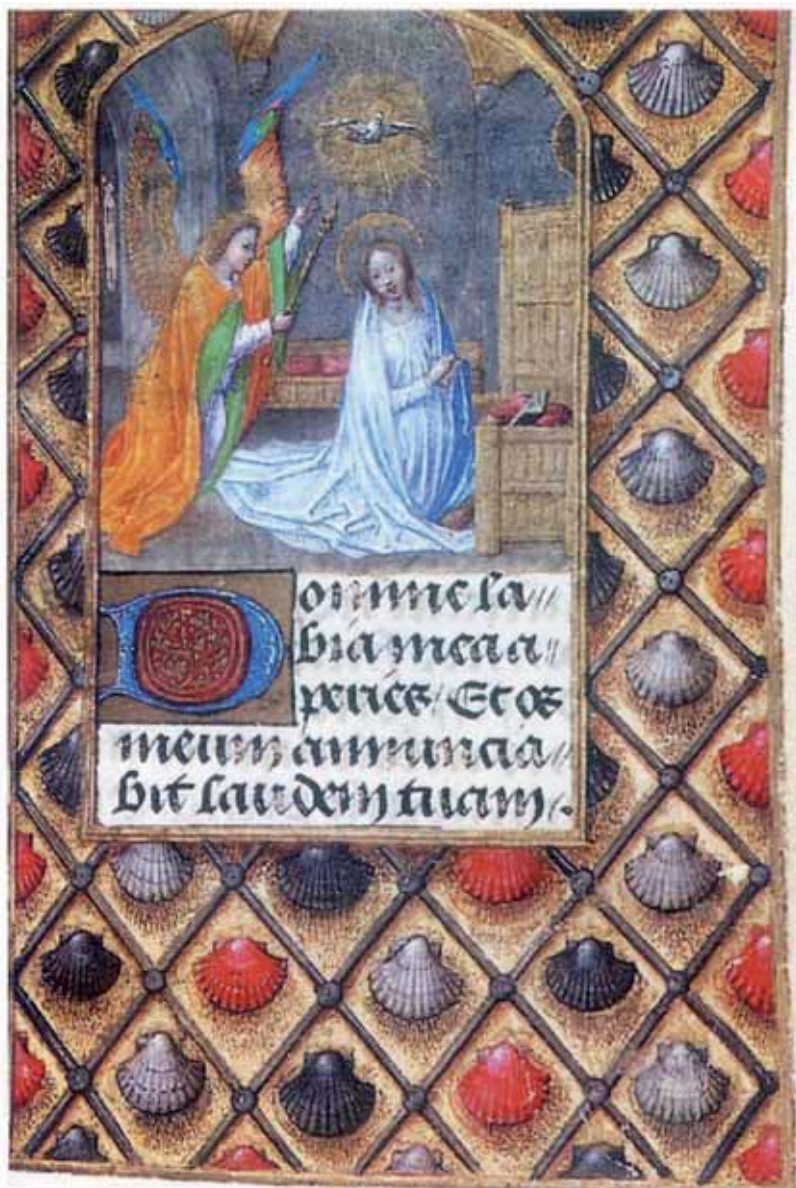 Domine la//
bia mea a//
peries / Et os
meum annuncia//
bit laudem tuam/.